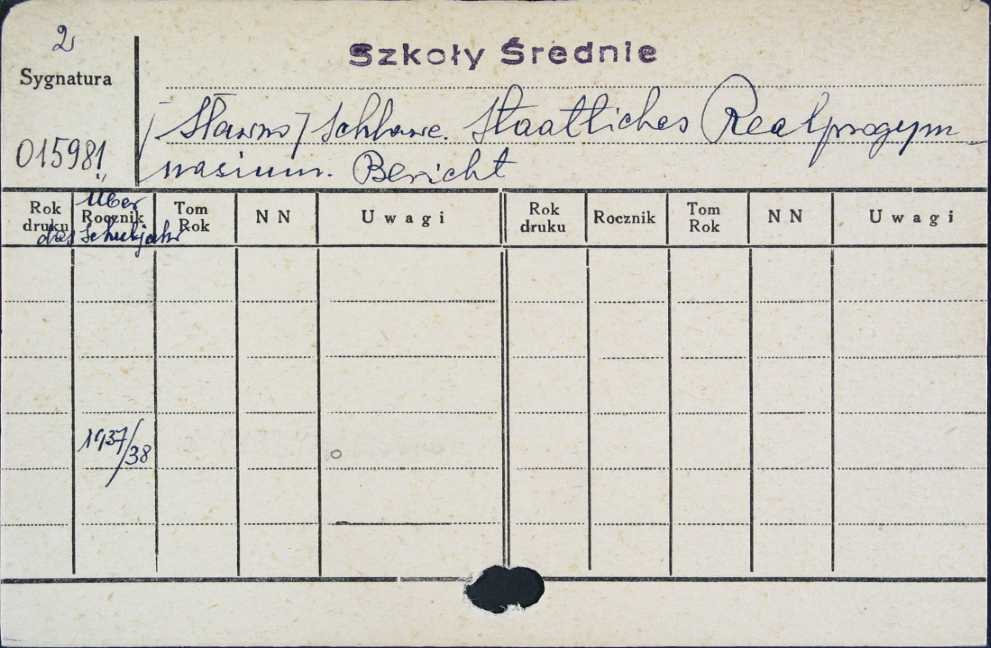 2
Szkoły Średnie
Sygnatura
[Sławno] Schlawe. Staatliches Realprogym-
015981
nasium. Bericht
über
Rok druku Rocznik Tom Rok NN Uwagi Rok druku Rocznik Tom Rok NN Uwagi
das Schuljahr
1937/38